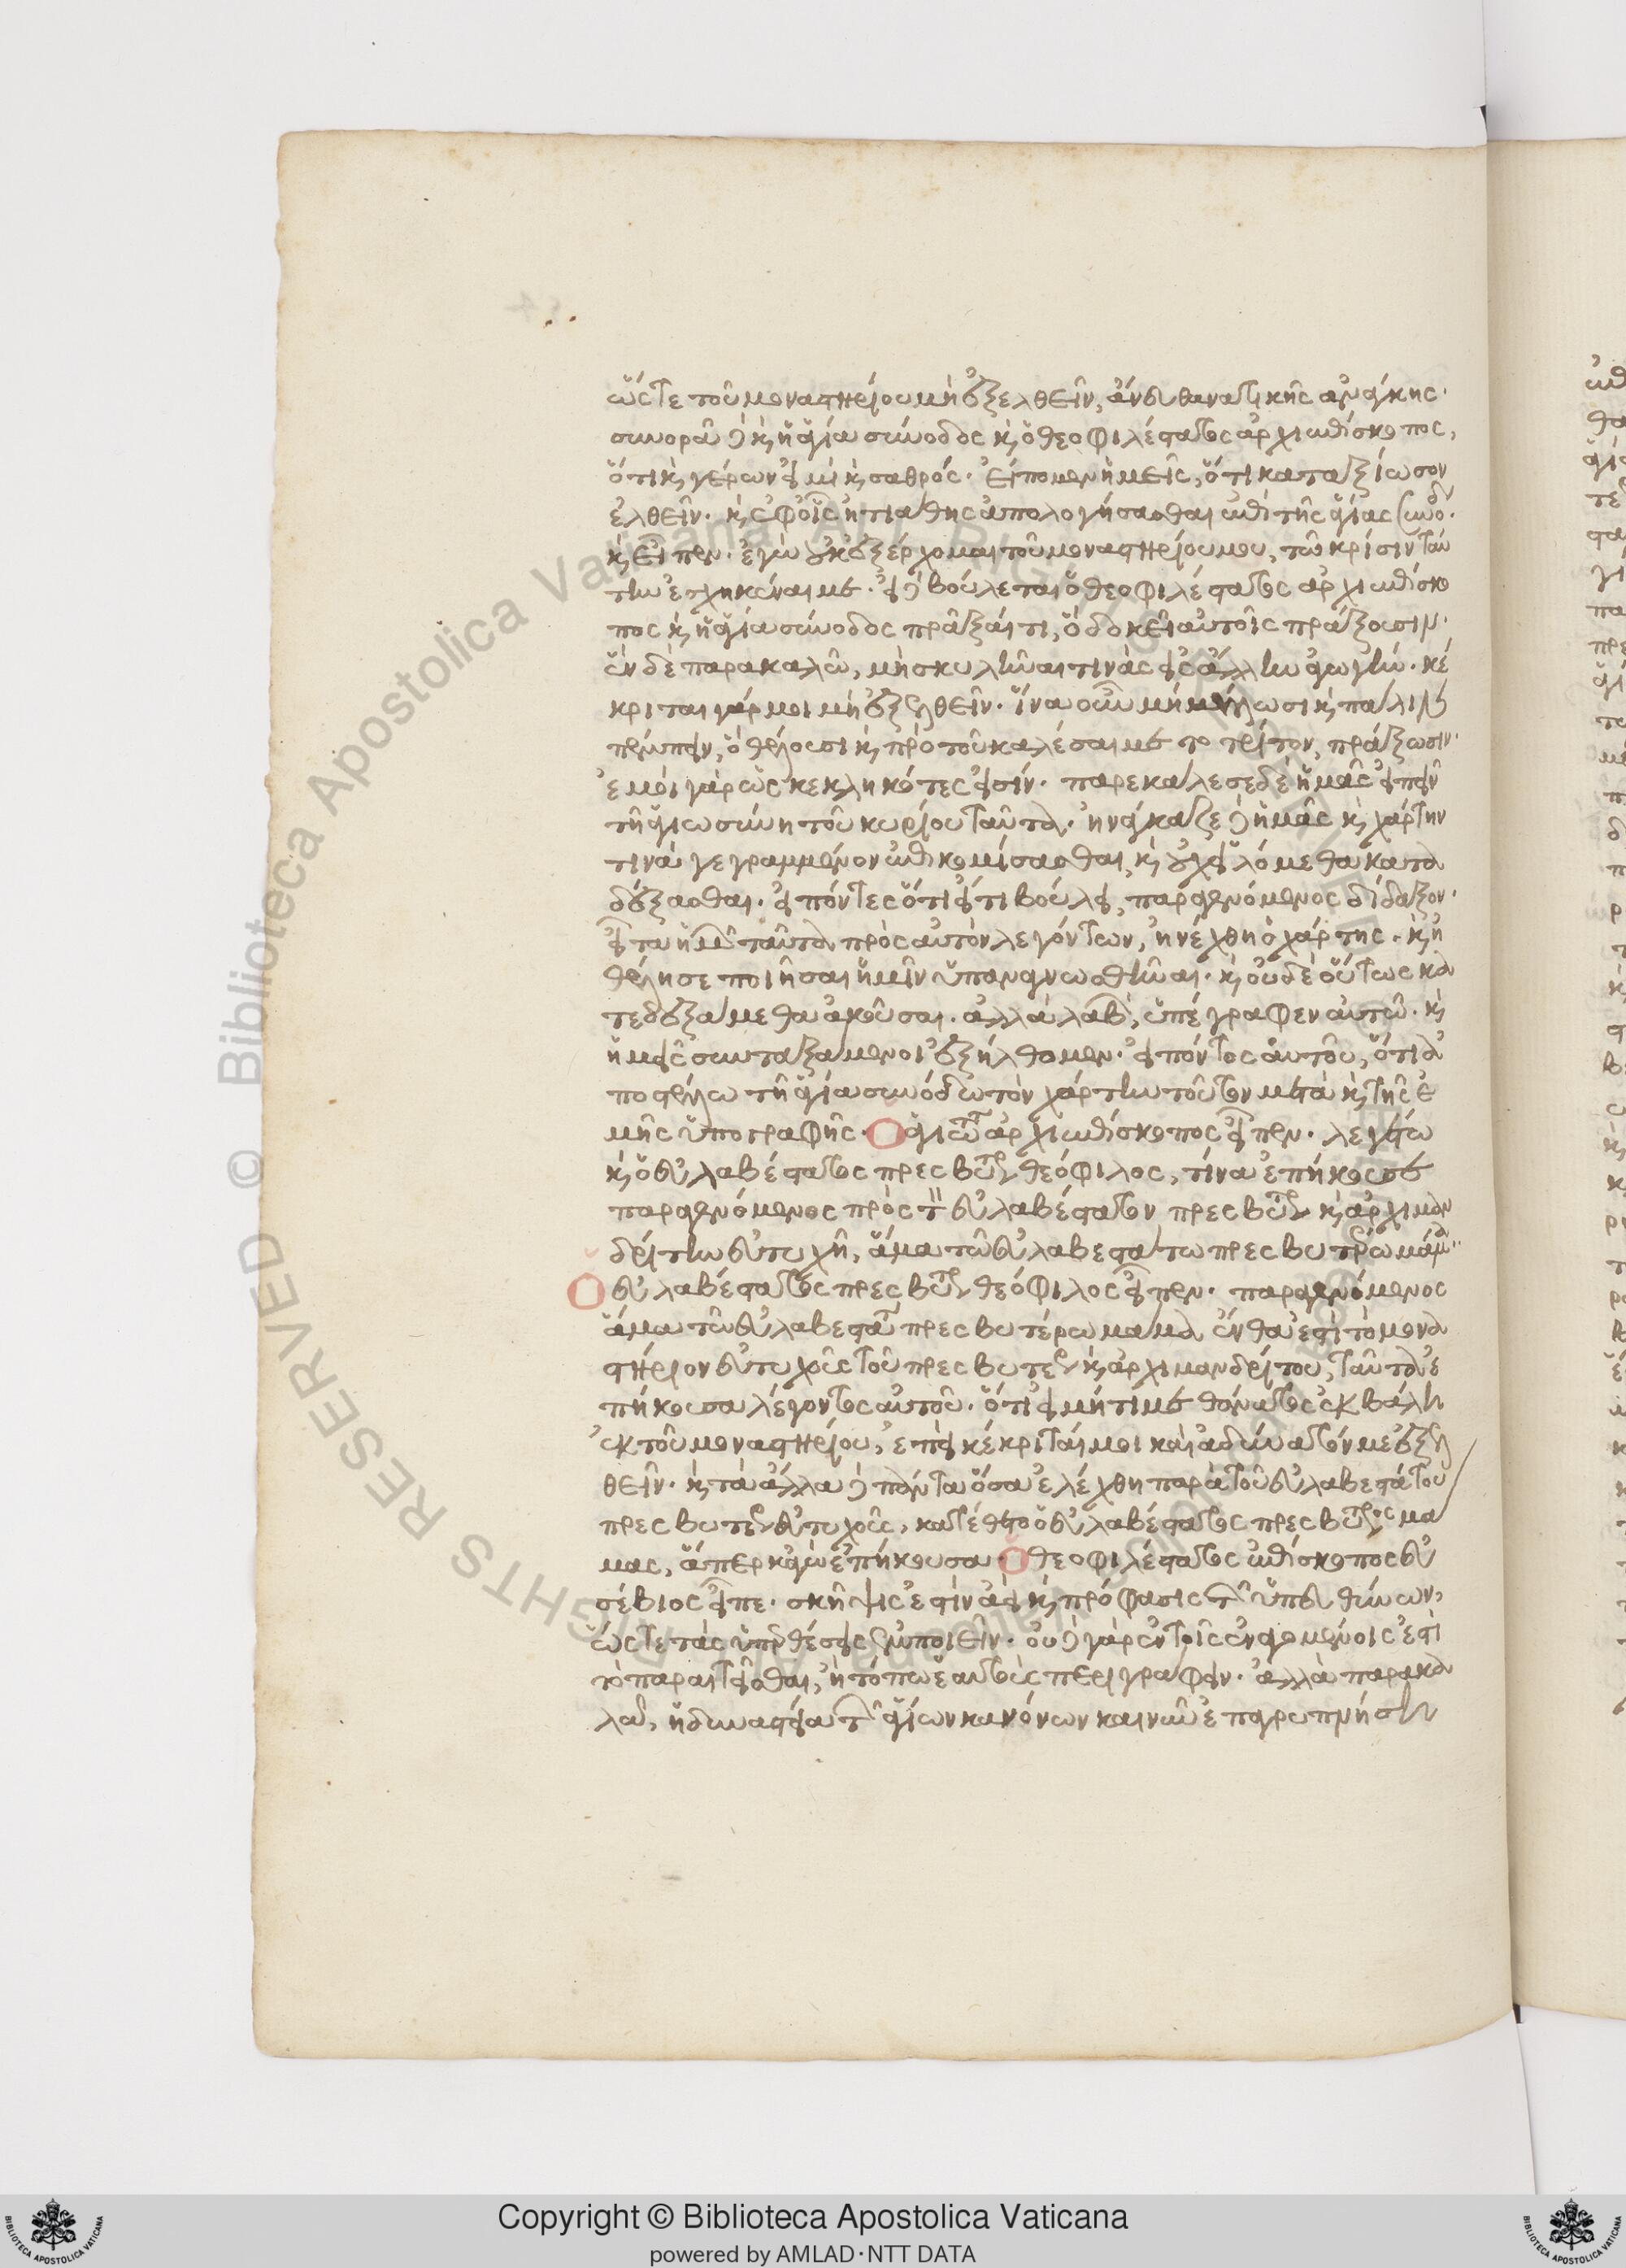 ὥστε τοῦ μοναστηρίου μὴ ἐξελθεῖν, ἄνευ θανατικῆς ἀνάγκης·
συνορᾶ δὲ κ(αὶ) ἡ ἁγία σύνοδος κ(αὶ) ὁ θεοφιλέστατος ἀρχιεπίσκοπος,
ὅτι κ(αὶ) γέρων εἰμὶ κ(αὶ) σαθρός· εἴπομεν ἡμεῖς, ὅτι καταξίωσον
ἐλθεῖν· κ(αὶ) ἐφ' οἷς ᾐτιάθης ἀπολογήσασθαι ἐπὶ τῆς ἁγίας συνόδ·
κ(αὶ) εἶπεν· ἐγὼ οὐκ ἐξέρχομαι τοῦ μοναστηρίου μου, τῶ κρίσιν ταύ
την ἐσχηκέναι με· εἰ δὲ βούλεται ὁ θεοφιλέστατος ἀρχιεπίσκο
πος κ(αὶ) ἡ ἁγία σύνοδος πρᾶξαί τι, ὃ δοκεῖ αὐτοῖς πράξουσιν·
ἓν δὲ παρακαλῶ, μὴ σκυλῆναι τινὰς εἰς ἄλλην ἀγωγήν· κέ
κριται γάρ μοι μὴ ἐξελθεῖν· ἵνα οὖν μὴ μέλλωσι κ(αὶ) πάλιν
πέμπειν, ὃ θέλουσι κ(αὶ) πρὸ τοῦ καλέσαι με τὸ τρίτον, πράξωσιν·
ἐμοὶ γὰρ ὡς κεκληκότες εἰσίν· παρεκάλεσε δὲ ἡμᾶς εἰπεῖν
τῆ ἁγιωσύνη τοῦ κυρίου ταῦτα· ἠνάγκαζε δὲ ἡμᾶς κ(αὶ) χάρτην
τινὰ γεγραμμένον ἐπικομίσασθαι, κ(αὶ) οὐχ εἱλόμεθα κατα
δέξασθαι· εἰπόντες ὅτι εἴ τι βούλει, παραγενόμενος δίδαξον·
εἶτα ἡμῶν ταῦτα πρὸς αὐτὸν λεγόντων, ἠνέχθη ὁ χάρτης· κ(αὶ) ἠ
θέλησε ποιῆσαι ἡμῖν ὑπαναγνωσθῆναι· κ(αὶ) οὐδὲ οὕτως κα
τεδεξάμεθα ἀκοῦσαι· ἀλλὰ λαβὼν, ὑπέγραφεν αὐτῶ· κ(αὶ)
ἡμεῖς συνταξάμενοι ἐξήλθομεν· εἰπόντος αὐτοῦ, ὅτι ἀ
ποστέλλω τῆ ἁγία συνόδω τὸν χάρτην τοῦτον μετὰ κ(αὶ) τῆς ἐ
μῆς ὑπογραφῆς· Ὁ ἁγιώτ ἀρχιεπίσκοπος εἶπεν· λεγέτω
κ(αὶ) ὁ εὐλαβέστατος πρεσβύτερ θεόφιλος, τίνα ἐπήκουσε
παραγενόμενος πρὸς τὸν εὐλαβέστατον πρεσβύτερ κ(αὶ) ἀρχιμαν
δρίτην εὐτυχῆ, ἅμα τῶ εὐλαβεστάτω πρεσβυτέρω μάμα··
Ὁ εὐλαβέστατος πρεσβύτερ θεόφιλος εἶπεν· παραγενόμενος
ἅμα τῶ εὐλαβεστάτ πρεσβυτέρω μάμα ἔνθα ἐστὶ τὸ μονα
στήριον εὐτυχοῦς τοῦ πρεσβυτέρ κ(αὶ) ἀρχιμανδρίτου, ταῦτα ἐ
πήκουσα λέγοντος αὐτοῦ· ὅτι εἰ μή τι με θάνατος ἐκβάλη
ἐκ τοῦ μοναστηρίου, ἐπεὶ κέκριταί μοι καὶ ἀδύνατόν με ἐξελ
θεῖν· κ(αὶ) τὰ ἄλλα δὲ πάντα ὅσα ἐλέχθη παρὰ τοῦ εὐλαβεστάτου
πρεσβυτέρ εὐτυχοῦς, κατέθετο ὁ εὐλαβέστατος πρεσβύτερος μα
μας, ἅπερ κἀγὼ ἐπήκουσα· Ὁ θεοφιλέστατος ἐπίσκοπος εὐ
σέβιος εἶπε· σκῆψις ἐστὶν ἀεὶ κ(αὶ) πρόφασις τῶν ὑπευθύνων,
ὥστε τὰς ὑπερθέσεις ἐμποιεῖν· οὐ δὲ γὰρ ἐν τοῖς ἐναγομένοις ἐστὶ
τὸ παραιτεῖσθαι, ἢ τόπω ἑαυτοὺς περιγράφειν· ἀλλὰ παρακα
λῶ, ἡ δυναστεία τῶν ἁγίων κανόνων καινῶν ἐπαρυπνήση